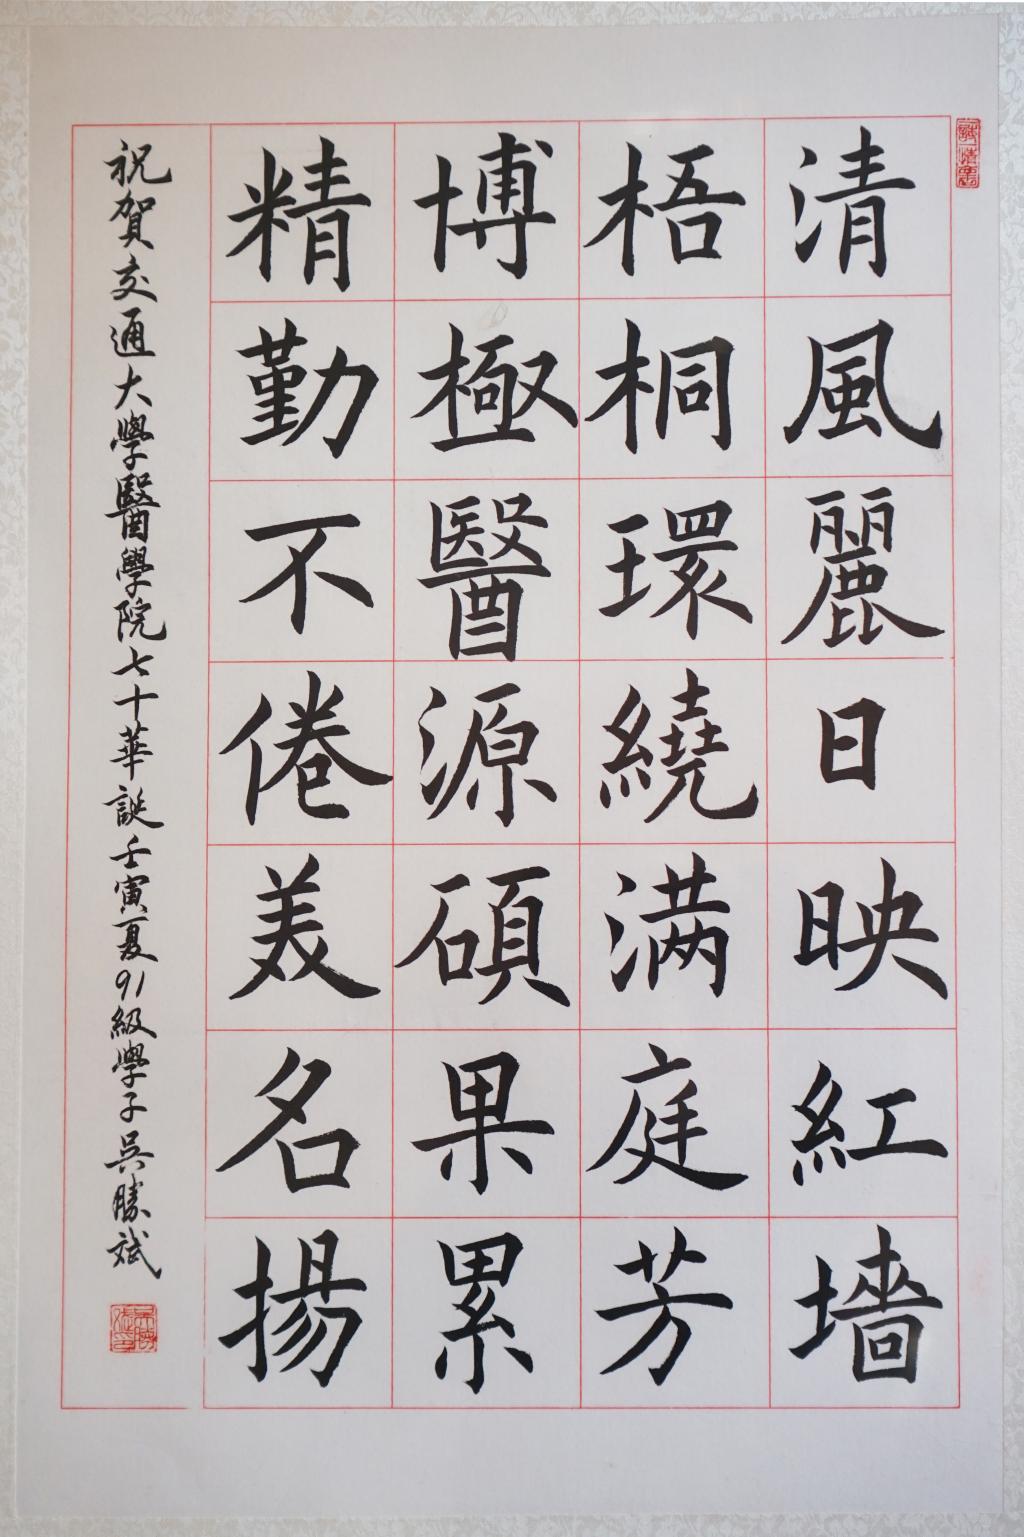 清風麗日映紅墻
梧桐環繞满庭芳
博極醫源碩果累
精勤不倦美名揚
祝賀交通大學醫學院七十華誕壬寅夏91級學子吳勝斌